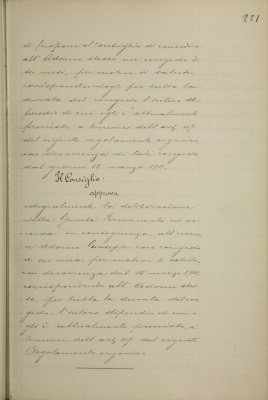 221
di proporre al Consiglio di concedere
all'Adorno stesso un congedo di
sei mesi, per motivi di salute,
corrispondendogli per tutta la
durata del congedo l'intero sti-
pendio di cui egli è attualmente
provvisto a termini dell'art. 117
del vigente regolamento organico,
con decorrenza di tale congedo
dal giorno 12 marzo 1911.
Il Consiglio:
approva
integralmente la deliberazione
della Giunta Permanente ed ac-
corda in conseguenza all'
Adorno Giuseppe un congedo
di sei mesi, per motivi di salute,
con decorrenza dal marzo
corrispondendo all'Adorno stes-
so, per tutta la durata del con-
gedo, l'intero stipendio di cui e-
gli è attualmente provvisto a
termini dell'art. 117 del vigente
Regolamento organico